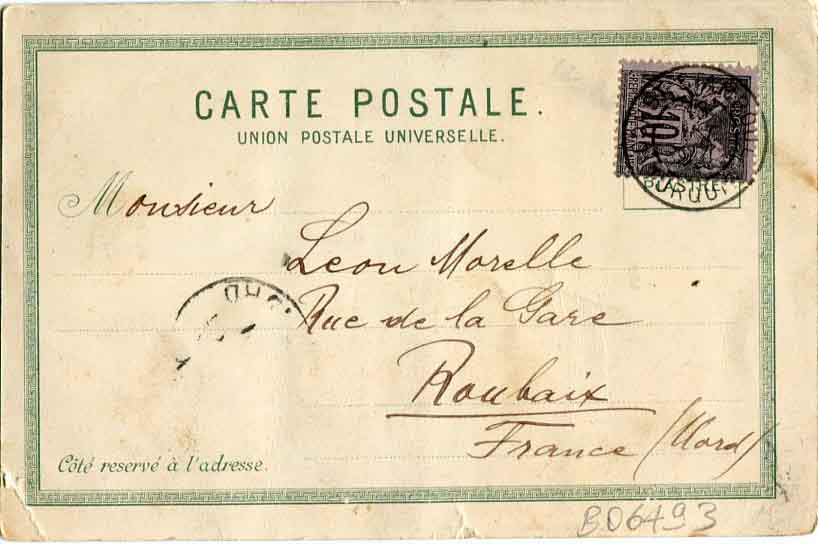 CARTE POSTALE.
UNION POSTALE UNIVERSELLE.
10
PIASTRE
Monsieur
Léon Morelle
Rue de la Gare
Roubaix
France (Nord)
Côté reservé à l'adresse.
B06493